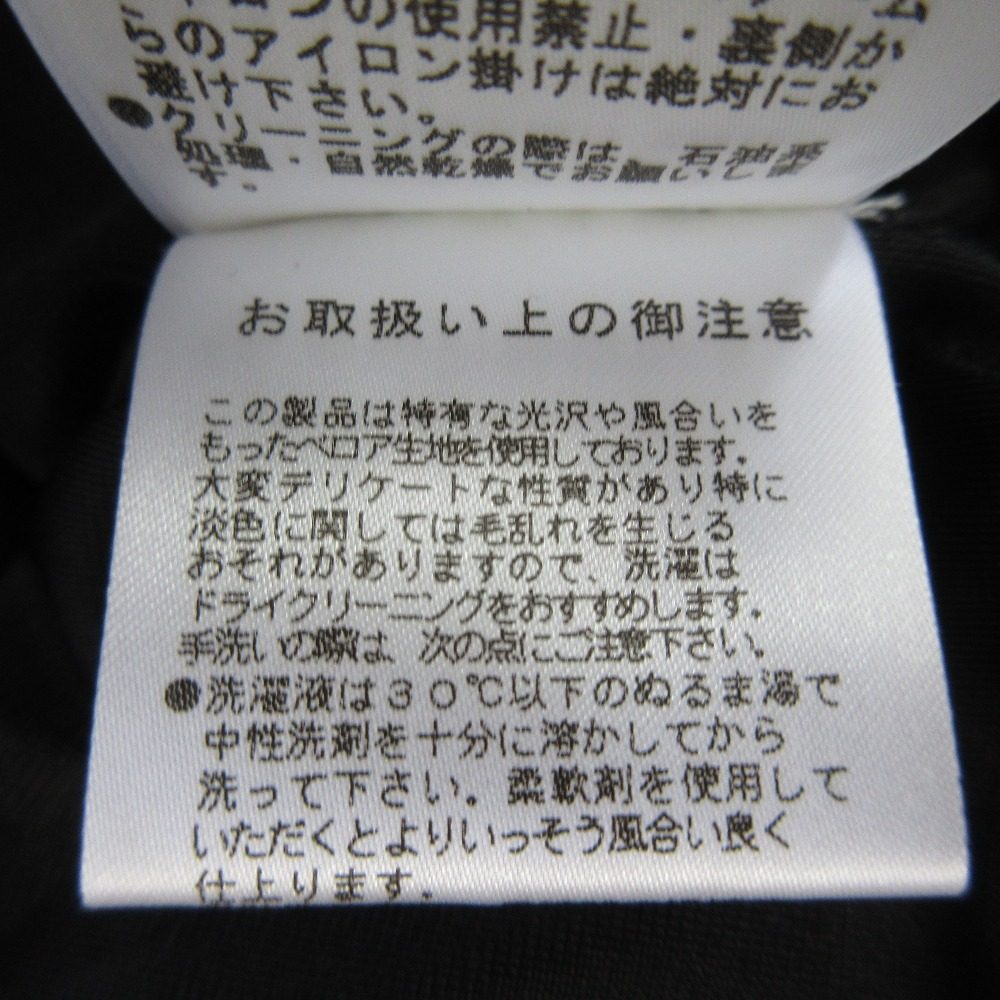 の使用禁止・裏側か
らのアイロン掛けは絶対にお
避け下さい。
●クリーニングの際は、石油系
処理・自然乾燥でお願いし
す。
お取扱い上の御注意
この製品は特有な光沢や風合いを
もったベロア生地を使用しております。
大変デリケートな性質があり特に
淡色に関しては毛乱れを生じる
おそれがありますので、洗濯は
ドライクリーニングをおすすめします。
手洗いの際は、次の点にご注意下さい。
●洗濯液は30℃以下のぬるま湯で
中性洗剤を十分に溶かしてから
洗って下さい。柔軟剤を使用して
いただくとよりいっそう風合い良く
仕上ります.